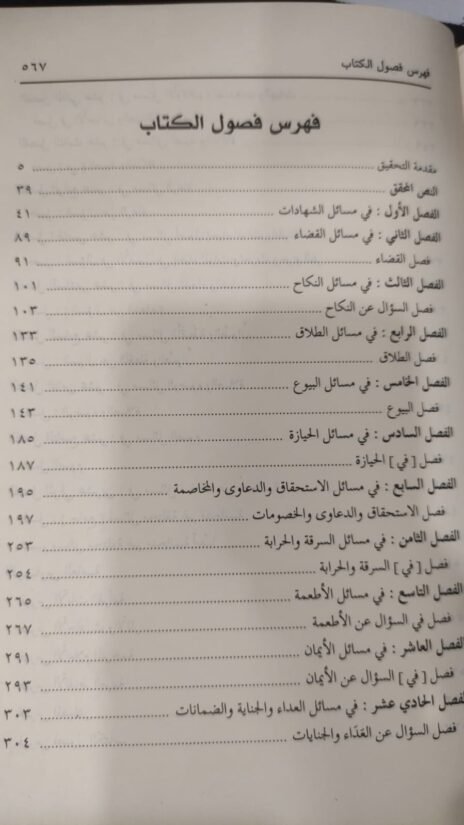 فهرس فصول الكتاب ٥٦٧
فهرس فصول الكتاب
مقدمة التحقيق ٥
النص المحقق ٣٩
الفصل الأول : في مسائل الشهادات ٤١
الفصل الثاني : في مسائل القضاء ٨٩
فصل القضاء ٩١
الفصل الثالث : في مسائل النكاح ١٠١
فصل السؤال عن النكاح ١٠٣
الفصل الرابع : في مسائل الطلاق ١٣٣
فصل الطلاق ١٣٥
الفصل الخامس : في مسائل البيوع ١٤١
فصل البيوع ١٤٣
الفصل السادس : في مسائل الحيازة ١٨٥
فصل [ في ] الحيازة ١٨٧
الفصل السابع : في مسائل الاستحقاق والدعاوى والمخاصمة ١٩٥
فصل الاستحقاق والدعاوى والخصومات ١٩٧
الفصل الثامن : في مسائل السرقة والحرابة ٢٥٣
فصل [ في ] السرقة والحرابة ٢٥٤
الفصل التاسع : في مسائل الأطعمة ٢٦٥
فصل في السؤال عن الأطعمة ٢٦٧
الفصل العاشر : في مسائل الأيمان ٢٩١
فصل [ في ] السؤال عن الأيمان ٢٩٣
الفصل الحادي عشر : في مسائل العداء والجناية والضمانات ٣٠٣
فصل السؤال عن العَدَاء والجنايات ٣٠٤